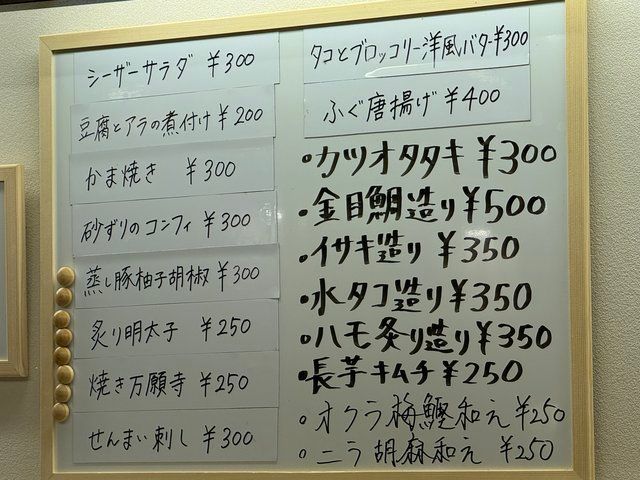 シーザーサラダ ¥300
豆腐とアラの煮付け ¥200
かま焼き ¥300
砂ずりのコンフィ ¥300
蒸し豚柚子胡椒 ¥300
炙り明太子 ¥250
焼き万願寺 ¥250
せんまい刺し ¥300
タコとブロッコリー洋風バター¥300
ふぐ唐揚げ ¥400
・カツオタタキ ¥300
・金目鯛造り ¥500
・イサキ造り ¥350
・水タコ造り ¥350
・ハモ炙り造り ¥350
・長芋キムチ ¥250
・オクラ梅鰹和え ¥250
・ニラ胡麻和え ¥250